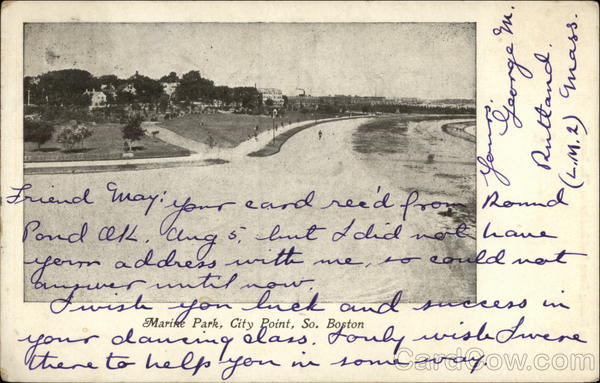 Friend May: your card rec'd from Round
Pond Ok. Aug 5, but I did not have
your address with me, so could not
answer until now.
I wish you luck and success in
Marine Park, City Point, So. Boston
your dancing class. I only wish I were
there to help you in some way.
Yours,
George M.
Rutland.
(L.M.2) Mass.
CardCow.com